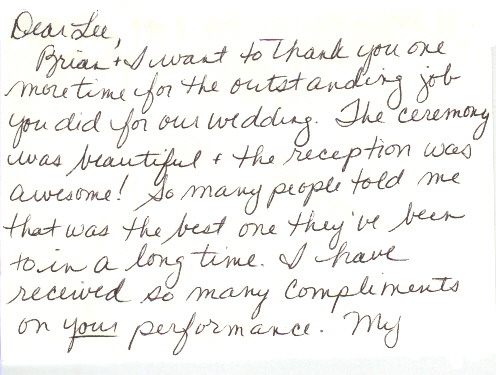 Dear Lee,
Brian + I want to thank you one
more time for the outstanding job
you did for our wedding. The ceremony
was beautiful + the reception was
awesome! So many people told me
that was the best one they've been
to in a long time. I have
received so many compliments
on your performance. My